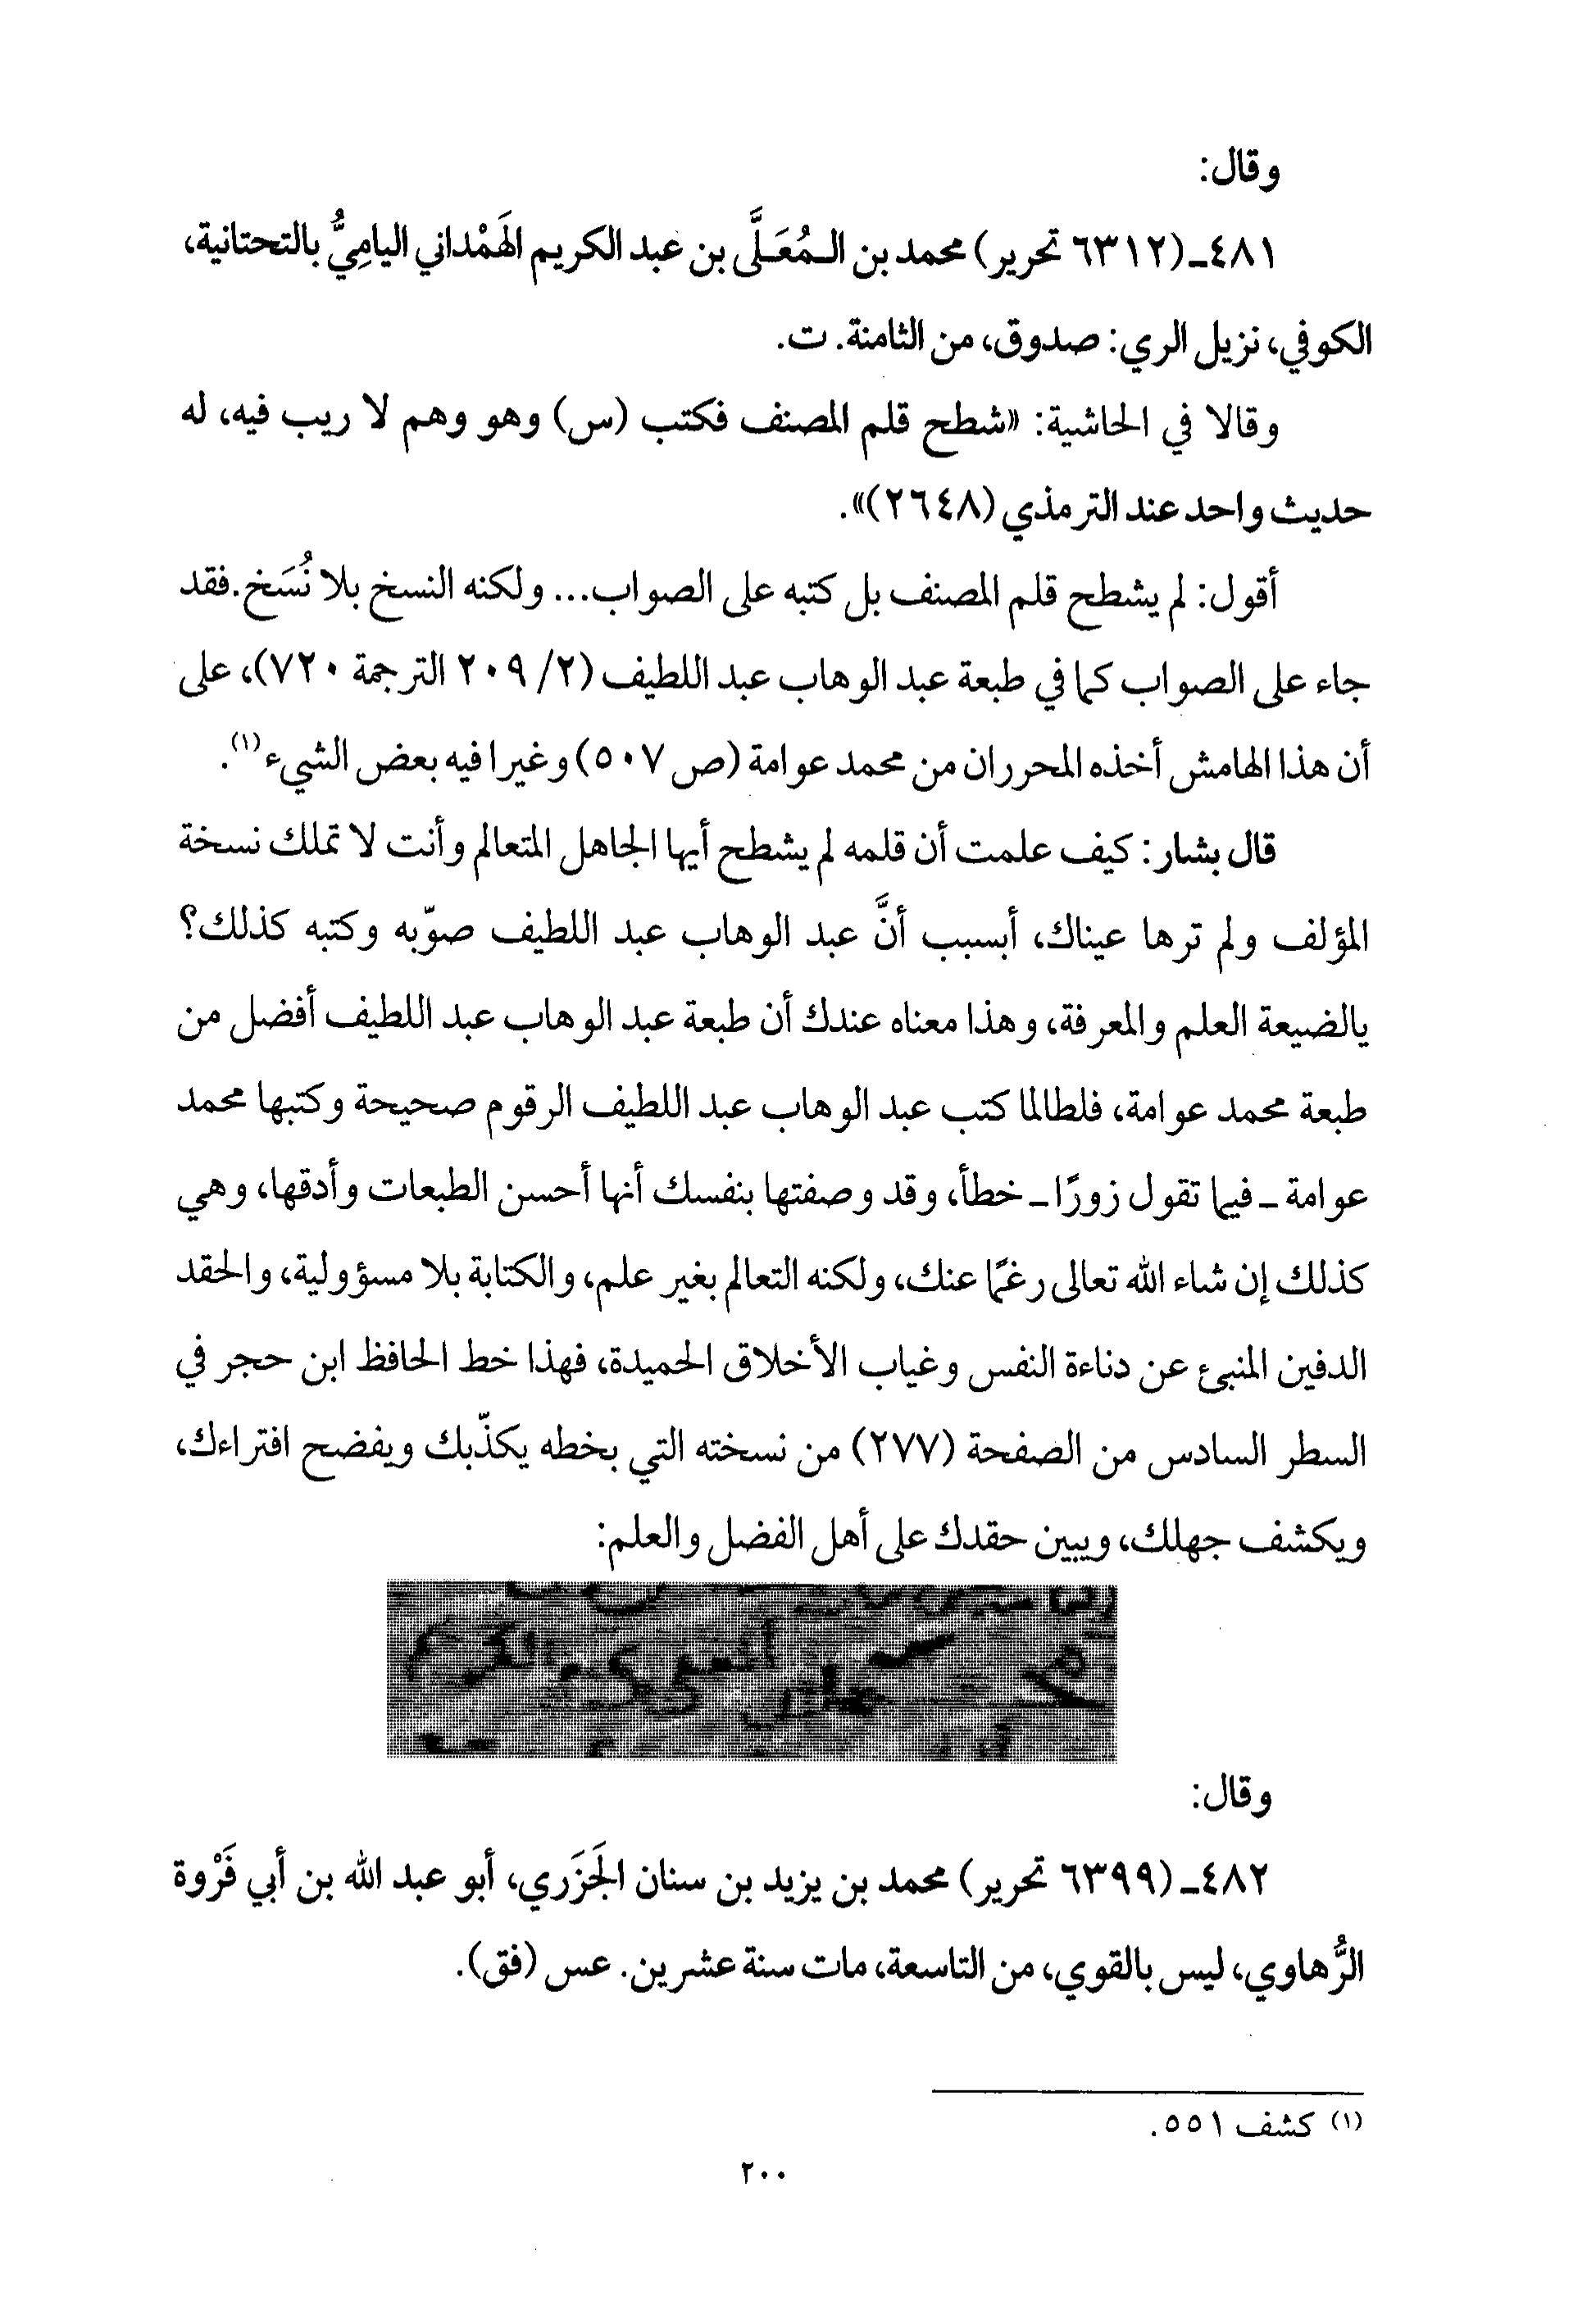 وقال:
٤٨١ـ (٦٣١٢ تحرير) محمد بن الـمُعَـلَّى بن عبد الكريم الهَمْداني الياميُّ بالتحتانية،
الكوفي، نزيل الري: صدوق، من الثامنة. ت.
وقالا في الحاشية: «شطح قلم المصنف فكتب (س) وهو وهم لا ريب فيه، له
حديث واحد عند الترمذي (٢٦٤٨)».
أقول: لم يشطح قلم المصنف بل كتبه على الصواب... ولكنه النسخ بلا نُسَخ. فقد
جاء على الصواب كما في طبعة عبد الوهاب عبد اللطيف (٢/ ٢٠٩ الترجمة ٧٢٠)، على
أن هذا الهامش أخذه المحرران من محمد عوامة (ص ٥٠٧) وغيرا فيه بعض الشيء(١).
قال بشار: كيف علمت أن قلمه لم يشطح أيها الجاهل المتعالم وأنت لا تملك نسخة
المؤلف ولم ترها عيناك، أبسبب أنَّ عبد الوهاب عبد اللطيف صوّبه وكتبه كذلك؟
يالضيعة العلم والمعرفة، وهذا معناه عندك أن طبعة عبد الوهاب عبد اللطيف أفضل من
طبعة محمد عوامة، فلطالما كتب عبد الوهاب عبد اللطيف الرقوم صحيحة وكتبها محمد
عوامة ـ فيما تقول زورًا ـ خطأ، وقد وصفتها بنفسك أنها أحسن الطبعات وأدقها، وهي
كذلك إن شاء الله تعالى رغمًا عنك، ولكنه التعالم بغير علم، والكتابة بلا مسؤولية، والحقد
الدفين المنبئ عن دناءة النفس وغياب الأخلاق الحميدة، فهذا خط الحافظ ابن حجر في
السطر السادس من الصفحة (٢٧٧) من نسخته التي بخطه يكذّبك ويفضح افتراءك،
ويكشف جهلك، ويبين حقدك على أهل الفضل والعلم:
وقال:
٤٨٢ـ (٦٣٩٩ تحرير) محمد بن يزيد بن سنان الجَزَري، أبو عبد الله بن أبي فَرْوة
الرُّهاوي، ليس بالقوي، من التاسعة، مات سنة عشرين. عس (فق).
(١) كشف ٥٥١.
٢٠٠